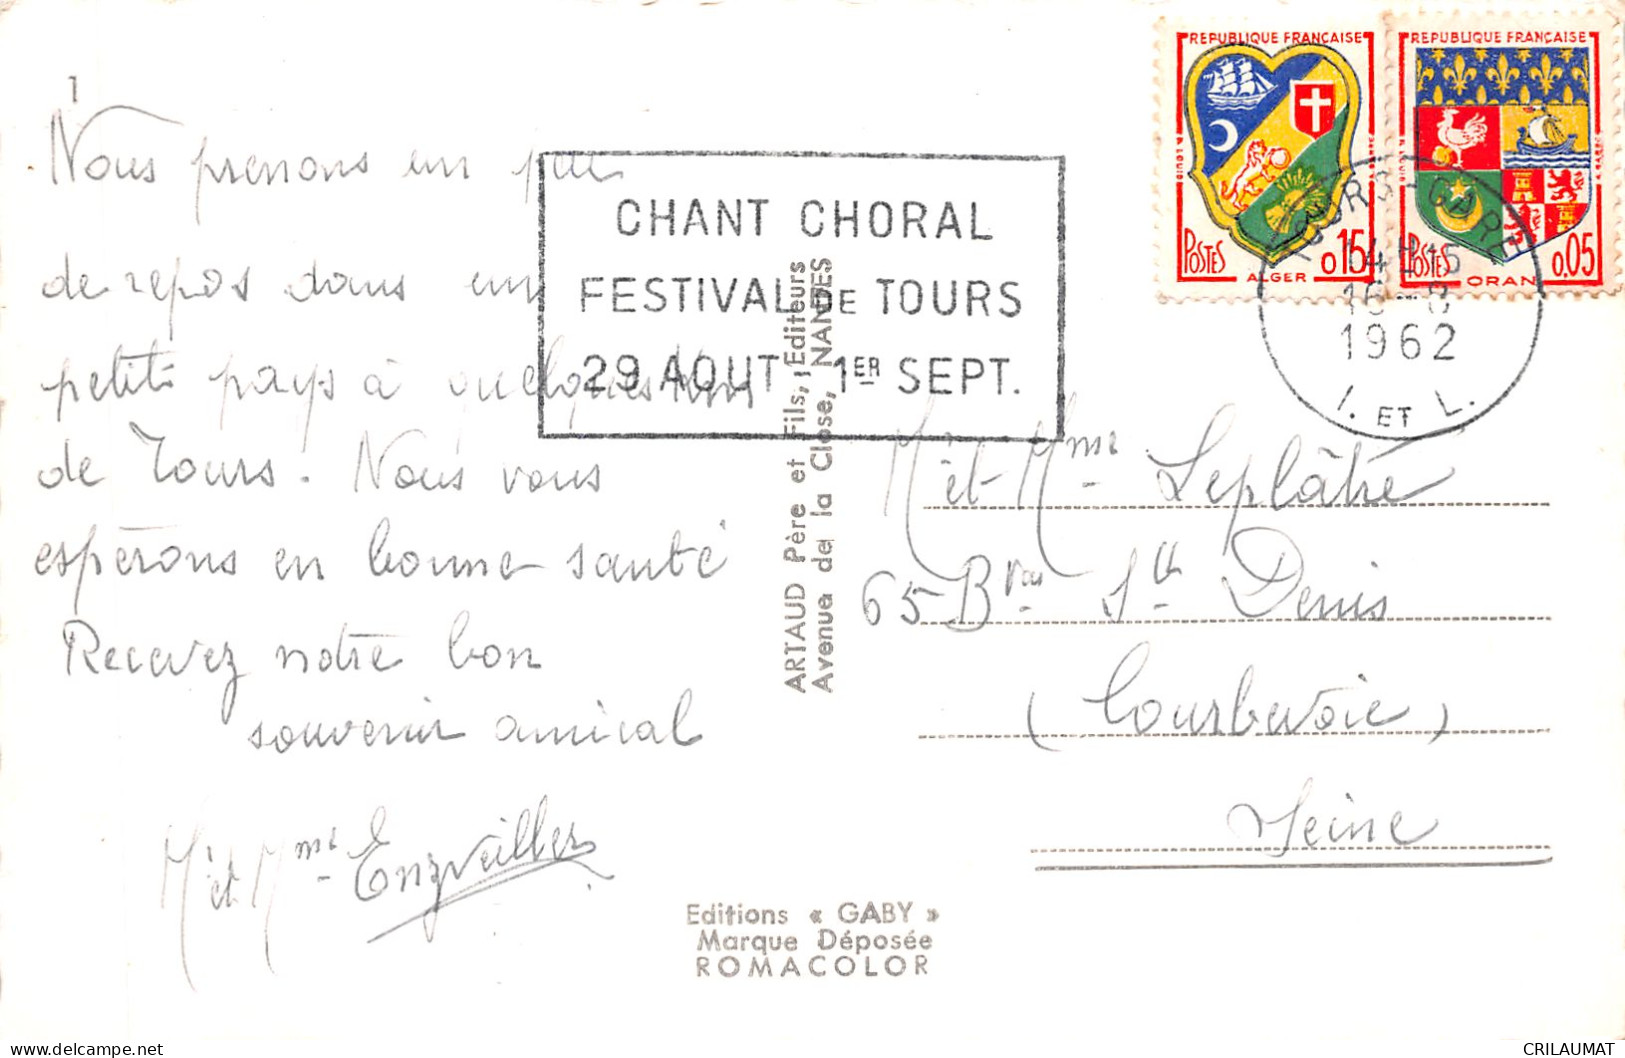 1
Nous prenons un peu
de repos dans un
petit pays à quelques Kms
de Tours. Nous vous
espérons en bonne santé
Recevez notre bon
souvenir amical
M et Mme
CHANT CHORAL
FESTIVAL DE TOURS
29 AOUT - 1ER SEPT.
ARTAUD Père et Fils, Editeurs
Avenue de la Close, NANTES
REPUBLIQUE FRANÇAISE
POSTES
ALGER
0,15
REPUBLIQUE FRANÇAISE
POSTES
ORAN
0,05
TOURS-GARE
1962
I. ET L.
M et Mme Leplâtre
65 Bvd St Denis
(Courbevoie)
Seine
Editions « GABY »
Marque Déposée
ROMACOLOR
delcampe.net
CRILAUMAT